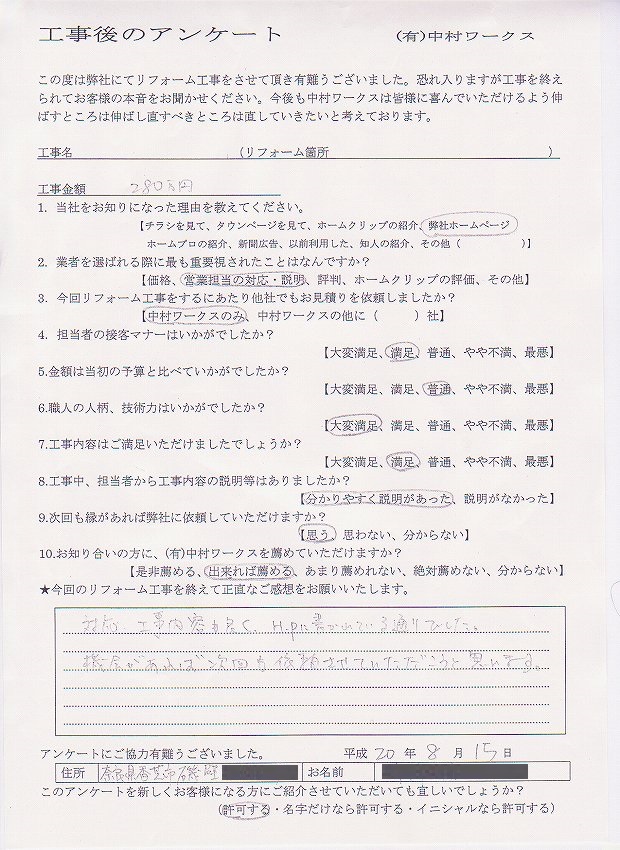 工事後のアンケート (有)中村ワークス
この度は弊社にてリフォーム工事をさせて頂き有難うございました。恐れ入りますが工事を終え
られてお客様の本音をお聞かせください。今後も中村ワークスは皆様に喜んでいただけるよう伸
ばすところは伸ばし直すべきところは直していきたいと考えております。
工事名 (リフォーム箇所 )
工事金額 280万円
1. 当社をお知りになった理由を教えてください。
【チラシを見て、タウンページを見て、ホームクリップの紹介、弊社ホームページ
ホームプロの紹介、新聞広告、以前利用した、知人の紹介、その他（ )】
2. 業者を選ばれる際に最も重要視されたことはなんですか？
【価格、営業担当の対応・説明、評判、ホームクリップの評価、その他】
3. 今回リフォーム工事をするにあたり他社でもお見積りを依頼しましたか？
【中村ワークスのみ、中村ワークスの他に（ ）社】
4. 担当者の接客マナーはいかがでしたか？
【大変満足、満足、普通、やや不満、最悪】
5.金額は当初の予算と比べていかがでしたか？
【大変満足、満足、普通、やや不満、最悪】
6.職人の人柄、技術力はいかがでしたか？
【大変満足、満足、普通、やや不満、最悪】
7.工事内容はご満足いただけましたでしょうか？
【大変満足、満足、普通、やや不満、最悪】
8.工事中、担当者から工事内容の説明等はありましたか？
【分かりやすく説明があった、説明がなかった】
9.次回も縁があれば弊社に依頼していただけますか？
【思う、思わない、分からない】
10.お知り合いの方に、(有)中村ワークスを薦めていただけますか？
【是非薦める、出来れば薦める、あまり薦めれない、絶対薦めない、分からない】
★今回のリフォーム工事を終えて正直なご感想をお願いいたします。
対応、工事内容も良く、H.Pに書かれている通りでした。
機会があれば次回も依頼させていただこうと思います。
アンケートにご協力有難うございました。 平成 20 年 8 月 15 日
住所 奈良県香芝市 お名前
このアンケートを新しくお客様になる方にご紹介させていただいても宜しいでしょうか？
（許可する・名字だけなら許可する・イニシャルなら許可する）